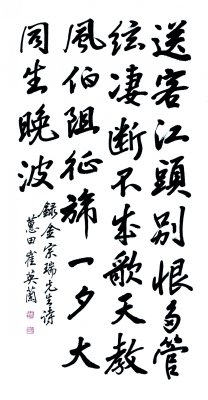 送客江頭別恨多管
絃凄断不成歌天教
風伯阻征旆一夕大
同生晚波
錄金宗瑞先生詩
蕙田崔英蘭